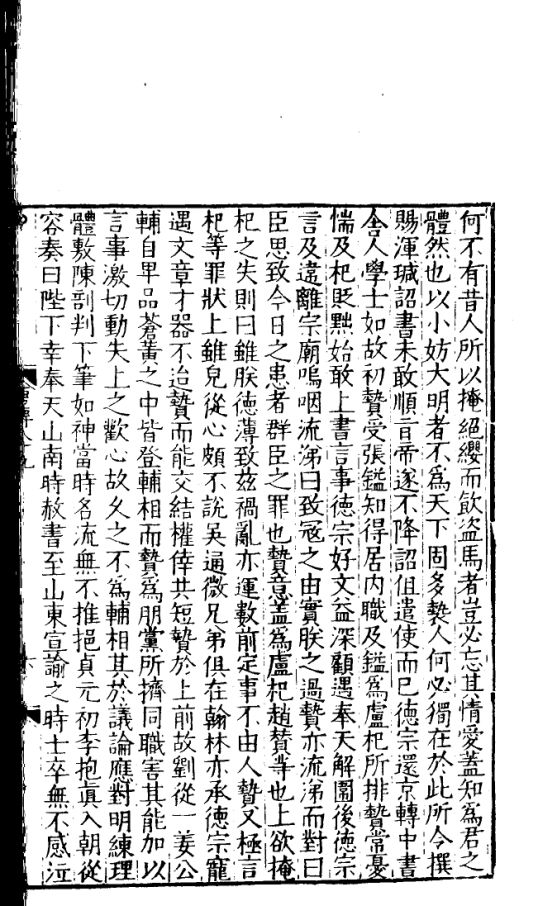 何不有昔人所以掩絕纓而飲盜馬者豈必忘其情愛蓋知爲君之
體然也以小妨大明者不爲天下固多褻人何必獨在於此所令撰
賜渾瑊詔書未敢順旨帝遂不降詔但遣使而已德宗還京轉中書
舍人學士如故初贄受張鎰知得居内職及鎰爲盧杞所排贄常憂
惴及杞貶黜始敢上書言事德宗好文益深顧遇奉天解圍後德宗
言及違離宗廟嗚咽流涕曰致冦之由實朕之過贄亦流涕而對曰
臣思致今日之患者群臣之罪也贄意蓋爲盧杞趙贊等也上欲掩
杞之失則曰雖朕德薄致茲禍亂亦運數前定事不由人贄又極言
杞等罪狀上雖皃從心頗不說吳通微兄弟俱在翰林亦承德宗寵
遇文章才器不迨贄而能交結權倖共短贄於上前故劉從一姜公
輔自卑品蒼黃之中皆登輔相而贄爲朋黨所擠同職害其能加以
言事激切動失上之歡心故久之不爲輔相其於議論應對明練理
體敷陳剖判下筆如神當時名流無不推挹貞元初李抱眞入朝從
容奏曰陛下幸奉天山南時赦書至山東宣諭之時士卒無不感泣